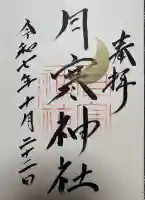 奉拝
月寒神社
令和七年十月二十二日